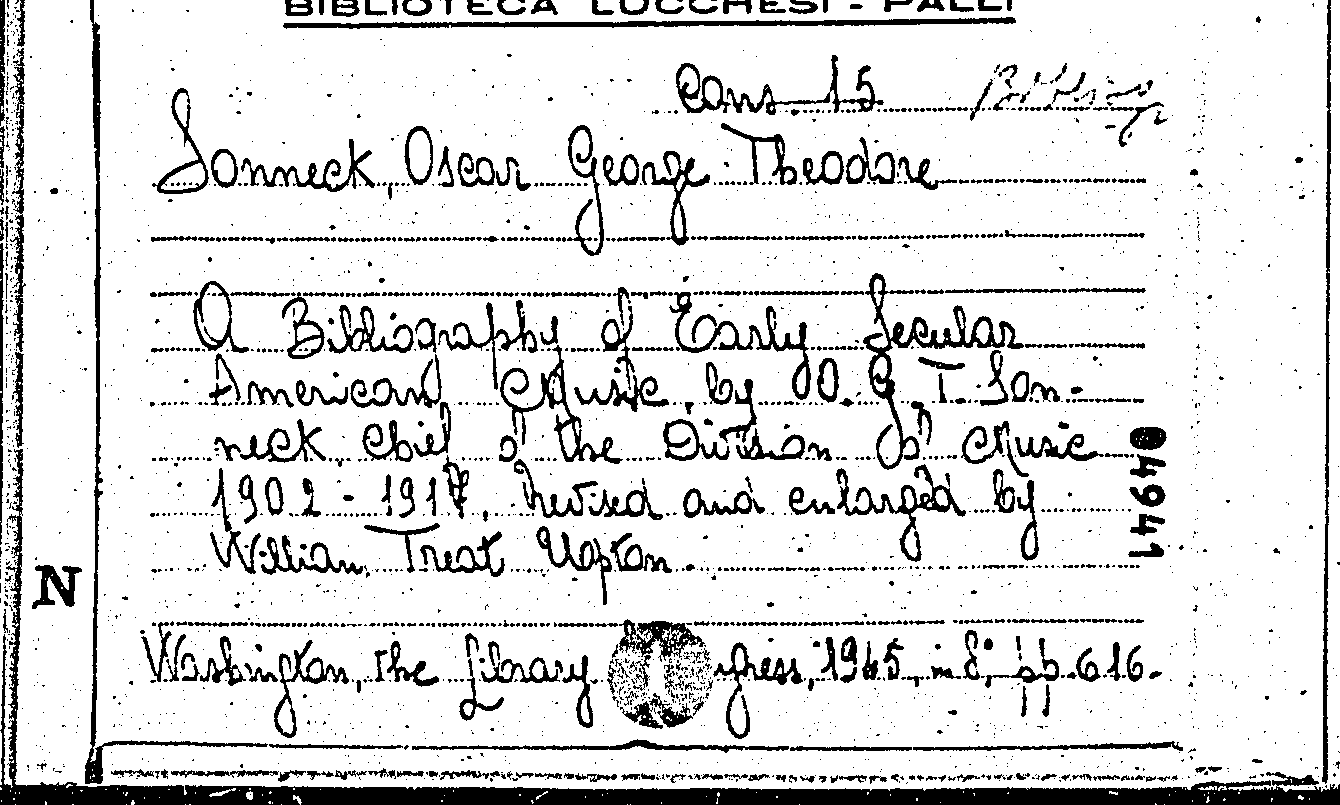 BIBLIOTECA LUCCHESI - PALLI
Cons. 15
Sonneck, Oscar George Theodore
A Bibliography of Early Secular
American Music by O. G. T. Son-
neck chief of the Division of Music
1902 - 1917, revised and enlarged by
William Treat Upton.
04941
N
Washington, the Library ngress, 1945, in 8°, pp. 616.